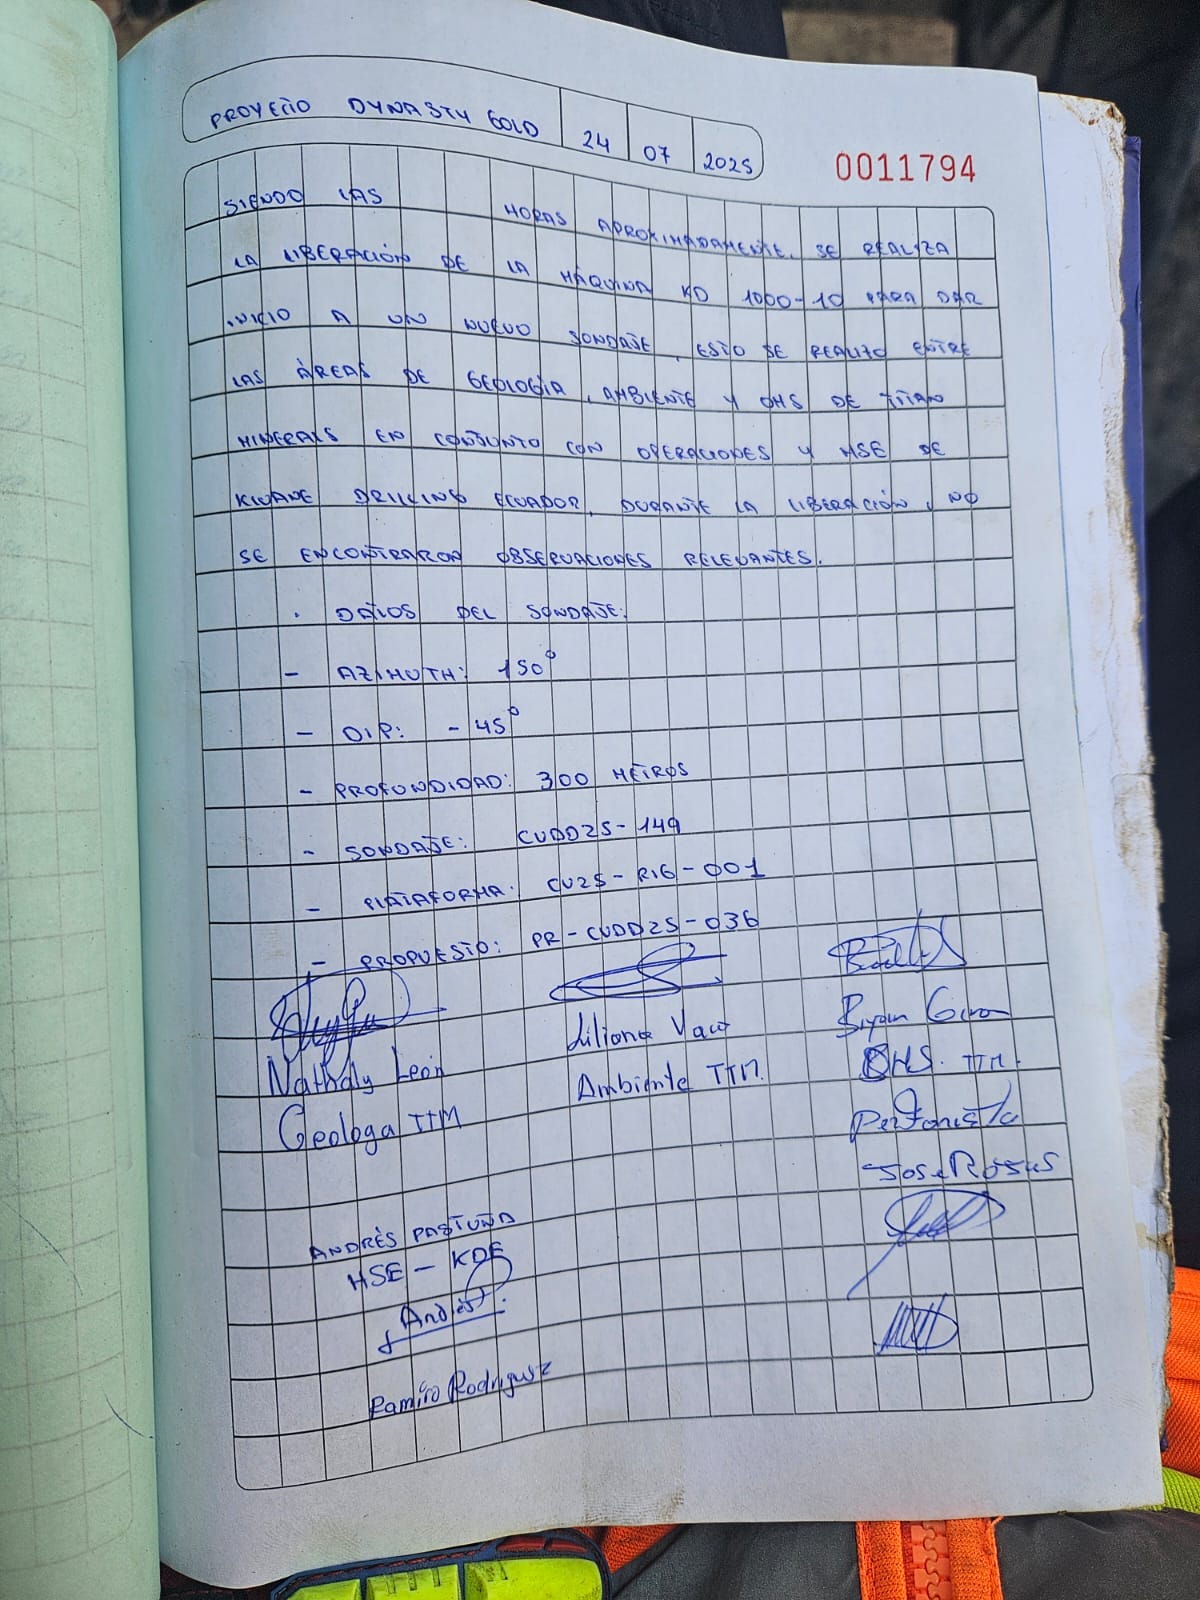 PROYECTO DYNASTY GOLD 24 07 2025
0011794
SIENDO LAS HORAS APROXIMADAMENTE. SE REALIZA
LA LIBERACIÓN DE LA MÁQUINA KD 1000-10 PARA DAR
INICIO A UN NUEVO SONDAJE, ESTO SE REALIZO ENTRE
LAS ÁREAS DE GEOLOGÍA, AMBIENTE Y OHS DE TITAN
MINERALS EN CONJUNTO CON OPERACIONES Y HSE DE
KLUANE DRILLING ECUADOR, DURANTE LA LIBERACIÓN, NO
SE ENCONTRARON OBSERVACIONES RELEVANTES.
. DATOS DEL SONDAJE:
- AZIMUTH: 150°
- DIP: - 45°
- PROFUNDIDAD: 300 METROS
- SONDAJE: CUDD25-149
- PLATAFORMA: CU25-R16-001
- PROPUESTO: PR-CUDD25-036
Nathaly León
Geologa TTM
Liliana Vaca
Ambiente TTM.
Bryan Giron
OHS. TTM.
Perforista
Jose Rosas
ANDRÉS PASTUÑA
HSE - KDE
Andrés
Ramiro Rodriguez